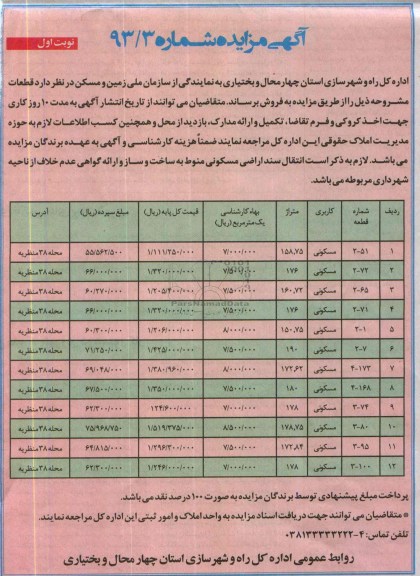 آگهی مزایده شماره ۹۳/۳
نوبت اول
اداره کل راه و شهرسازی استان چهارمحال و بختیاری به نمایندگی از سازمان ملی زمین و مسکن در نظر دارد قطعات
مشروحه ذیل را از طریق مزایده به فروش برساند. متقاضیان می توانند از تاریخ انتشار آگهی به مدت ۱۰ روز کاری
جهت اخذ کروکی و فرم تقاضا، تکمیل و ارائه مدارک، بازدید از محل و همچنین کسب اطلاعات لازم به حوزه
مدیریت املاک حقوقی این اداره کل مراجعه نمایند ضمناً هزینه کارشناسی و آگهی به عهده برندگان مزایده
می باشد. لازم به ذکر است انتقال سند اراضی مسکونی منوط به ساخت و ساز و ارائه گواهی عدم خلاف از ناحیه
شهرداری مربوطه می باشد.
ردیف شماره قطعه کاربری متراژ بهاء کارشناسی یک مترمربع (ریال) قیمت کل پایه (ریال) مبلغ سپرده (ریال) آدرس
۱ ۲-۵۱ مسکونی ۱۵۸,۷۵ ۷/۰۰۰/۰۰۰ ۱/۱۱۱/۲۵۰/۰۰۰ ۵۵/۵۶۲/۵۰۰ محله ۳۸ منظریه
۲ ۲-۷۲ مسکونی ۱۷۶ ۷/۵۰۰/۰۰۰ ۱/۳۲۰/۰۰۰/۰۰۰ ۶۶/۰۰۰/۰۰۰ محله ۳۸ منظریه
۳ ۲-۶۵ مسکونی ۱۶۰,۷۲ ۷/۵۰۰/۰۰۰ ۱/۲۰۵/۴۰۰/۰۰۰ ۶۰/۲۷۰/۰۰۰ محله ۳۸ منظریه
۴ ۲-۷۱ مسکونی ۱۷۶ ۷/۵۰۰/۰۰۰ ۱/۳۲۰/۰۰۰/۰۰۰ ۶۶/۰۰۰/۰۰۰ محله ۳۸ منظریه
۵ ۲-۱ مسکونی ۱۵۰,۷۵ ۸/۰۰۰/۰۰۰ ۱/۲۰۶/۰۰۰/۰۰۰ ۶۰/۳۰۰/۰۰۰ محله ۳۸ منظریه
۶ ۲-۷ مسکونی ۱۹۰ ۷/۵۰۰/۰۰۰ ۱/۴۲۵/۰۰۰/۰۰۰ ۷۱/۲۵۰/۰۰۰ محله ۳۸ منظریه
۷ ۴-۱۷۳ مسکونی ۱۷۲,۶۲ ۸/۰۰۰/۰۰۰ ۱/۳۸۰/۹۶۰/۰۰۰ ۶۹/۰۴۸/۰۰۰ محله ۳۸ منظریه
۸ ۲-۱۶۸ مسکونی ۱۸۰ ۷/۵۰۰/۰۰۰ ۱/۳۵۰/۰۰۰/۰۰۰ ۶۷/۵۰۰/۰۰۰ محله ۳۸ منظریه
۹ ۳-۷۴ مسکونی ۱۷۸ ۷/۰۰۰/۰۰۰ ۱۲۴۶/۰۰۰/۰۰۰ ۶۲/۳۰۰/۰۰۰ محله ۳۸ منظریه
۱۰ ۳-۸۰ مسکونی ۱۷۸,۷۵ ۸/۵۰۰/۰۰۰ ۱/۵۱۹/۳۷۵/۰۰۰ ۷۵/۹۶۸/۷۵۰ محله ۳۸ منظریه
۱۱ ۳-۹۵ مسکونی ۱۷۲,۸۴ ۷/۵۰۰/۰۰۰ ۱/۲۹۶/۳۰۰/۰۰۰ ۶۴/۸۱۵/۰۰۰ محله ۳۸ منظریه
۱۲ ۳-۱۰۰ مسکونی ۱۷۸ ۷/۰۰۰/۰۰۰ ۱/۲۴۶/۰۰۰/۰۰۰ ۶۲/۳۰۰/۰۰۰ محله ۳۸ منظریه
ParsNamadData
پرداخت مبلغ پیشنهادی توسط برندگان مزایده به صورت ۱۰۰ درصد نقد می باشد.
* متقاضیان می توانند جهت دریافت اسناد مزایده به واحد املاک و امور ثبتی این اداره کل مراجعه نمایند.
تلفن تماس: ۴-۰۳۸۱۳۳۳۳۳۲۲۲
روابط عمومی اداره کل راه و شهرسازی استان چهارمحال و بختیاری